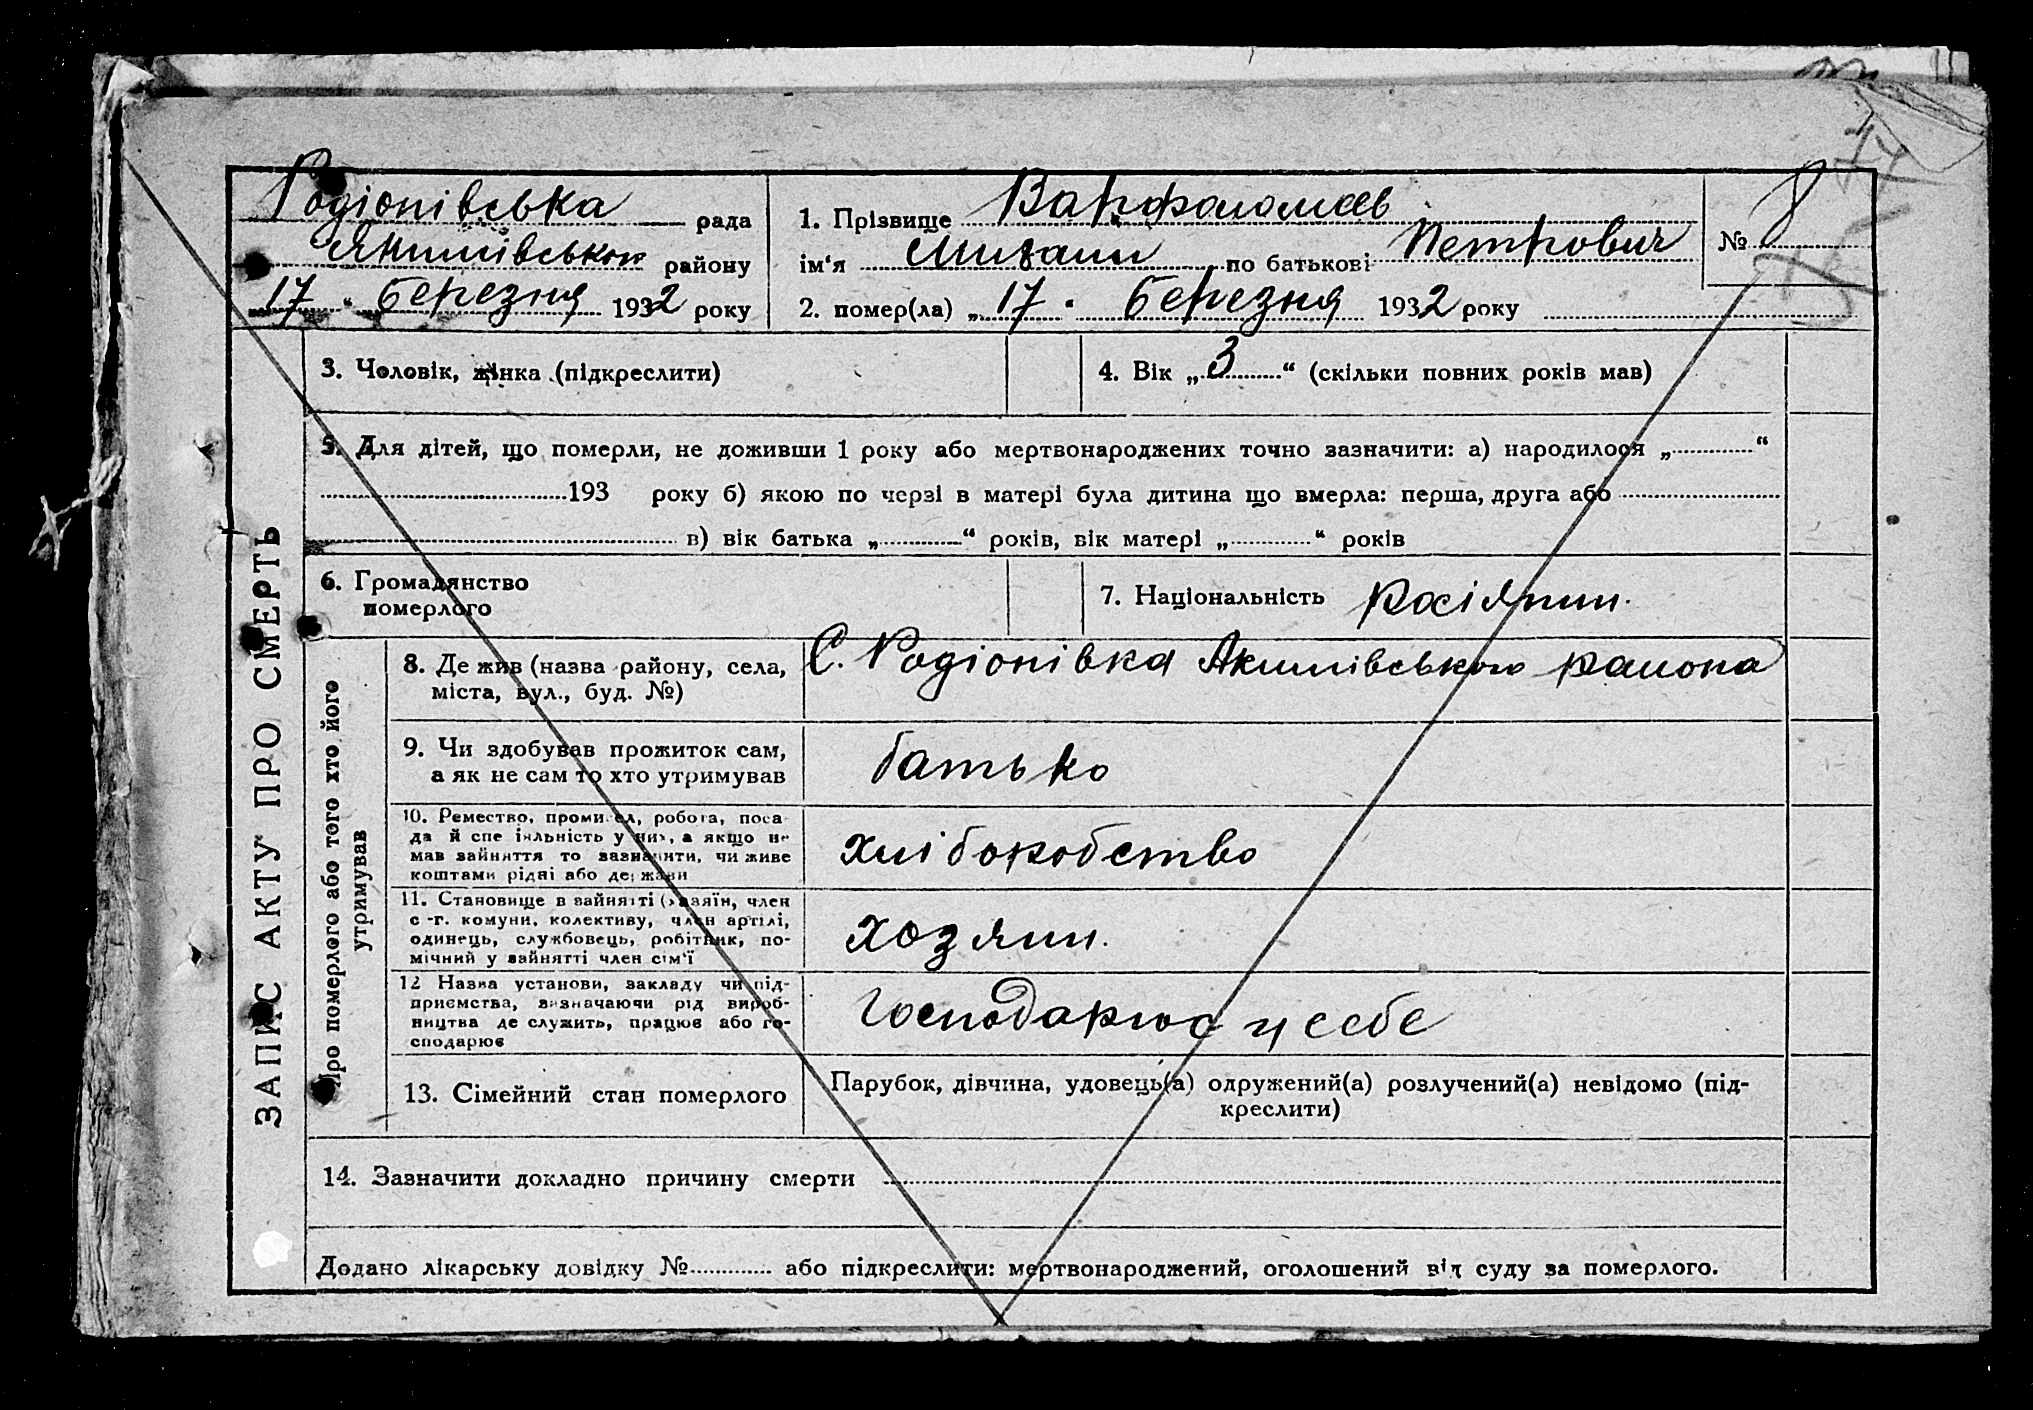 Родіонівська рада
Якимівського району
17 " Березня 1932 року
1. Прізвище Варфоломеев
ім'я Михаил по батькові Петрович
№ 8
2. помер(ла) „ 17 " Березня 1932 року
ЗАПИС АКТУ ПРО СМЕРТЬ
3. Чоловік, жінка (підкреслити)
4. Вік „ 3 “ (скільки повних років мав)
5. Для дітей, що померли, не доживши 1 року або мертвонароджених точно зазначити: а) народилося „ “
193 року б) якою по черзі в матері була дитина що вмерла: перша, друга або
в) вік батька „ “ років, вік матері „ “ років
6. Громадянство
померлого
7. Національність росіянин.
Про померлого або того хто його
утримував
8. Де жив (назва району, села,
міста, вул., буд. №)
С. Родіонівка Акимівського району
9. Чи здобував прожиток сам,
а як не сам то хто утримував
батько
10. Ремество, промисел, робота, поса-
да й спеціяльність у них, а якщо не
мав зайняття то зазначити, чи живе
коштами рідні або держави
хліборобство
11. Становище в зайнятті (хазяїн, член
с-г. комуни, колективу, член артілі,
одинець, службовець, робітник, по-
мічний у зайнятті член сім'ї
хозяин.
12 Назва установи, закладу чи під-
приємства, визначаючи рід вироб-
ництва де служить, працює або го-
сподарює
Господарює у себе
13. Сімейний стан померлого
Парубок, дівчина, удовець(а) одружений(а) розлучений(а) невідомо (під-
креслити)
14. Зазначити докладно причину смерти
Додано лікарську довідку № або підкреслити: мертвонароджений, оголошений від суду за померлого.